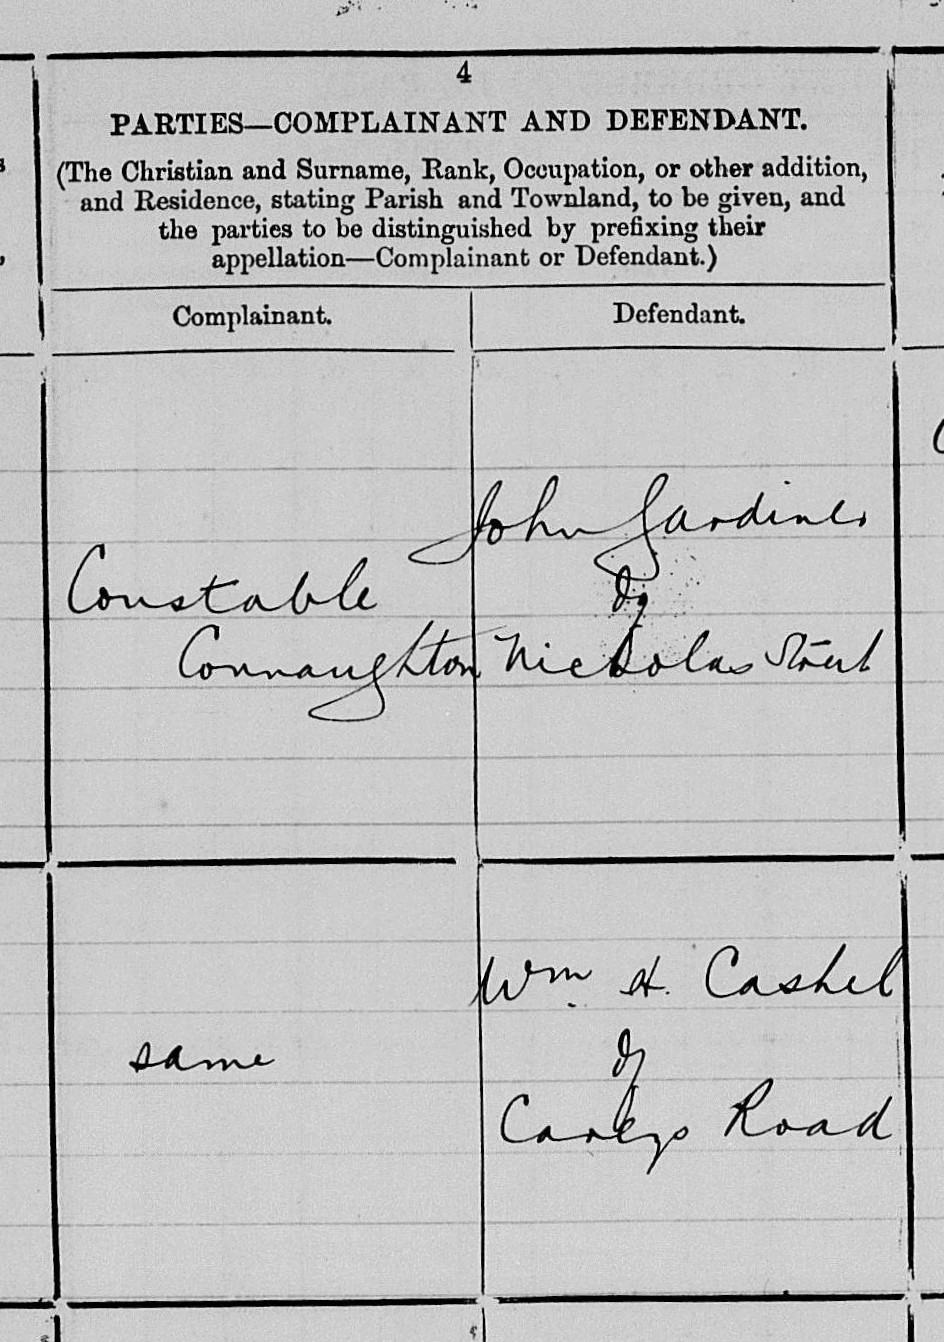 4
PARTIES—COMPLAINANT AND DEFENDANT.
(The Christian and Surname, Rank, Occupation, or other addition,
and Residence, stating Parish and Townland, to be given, and
the parties to be distinguished by prefixing their
appellation—Complainant or Defendant.)
Complainant.
Defendant.
John Gardiner
of
Constable
Connaughton
Nicholas Street
Wm H. Cashel
same
of
Careys Road